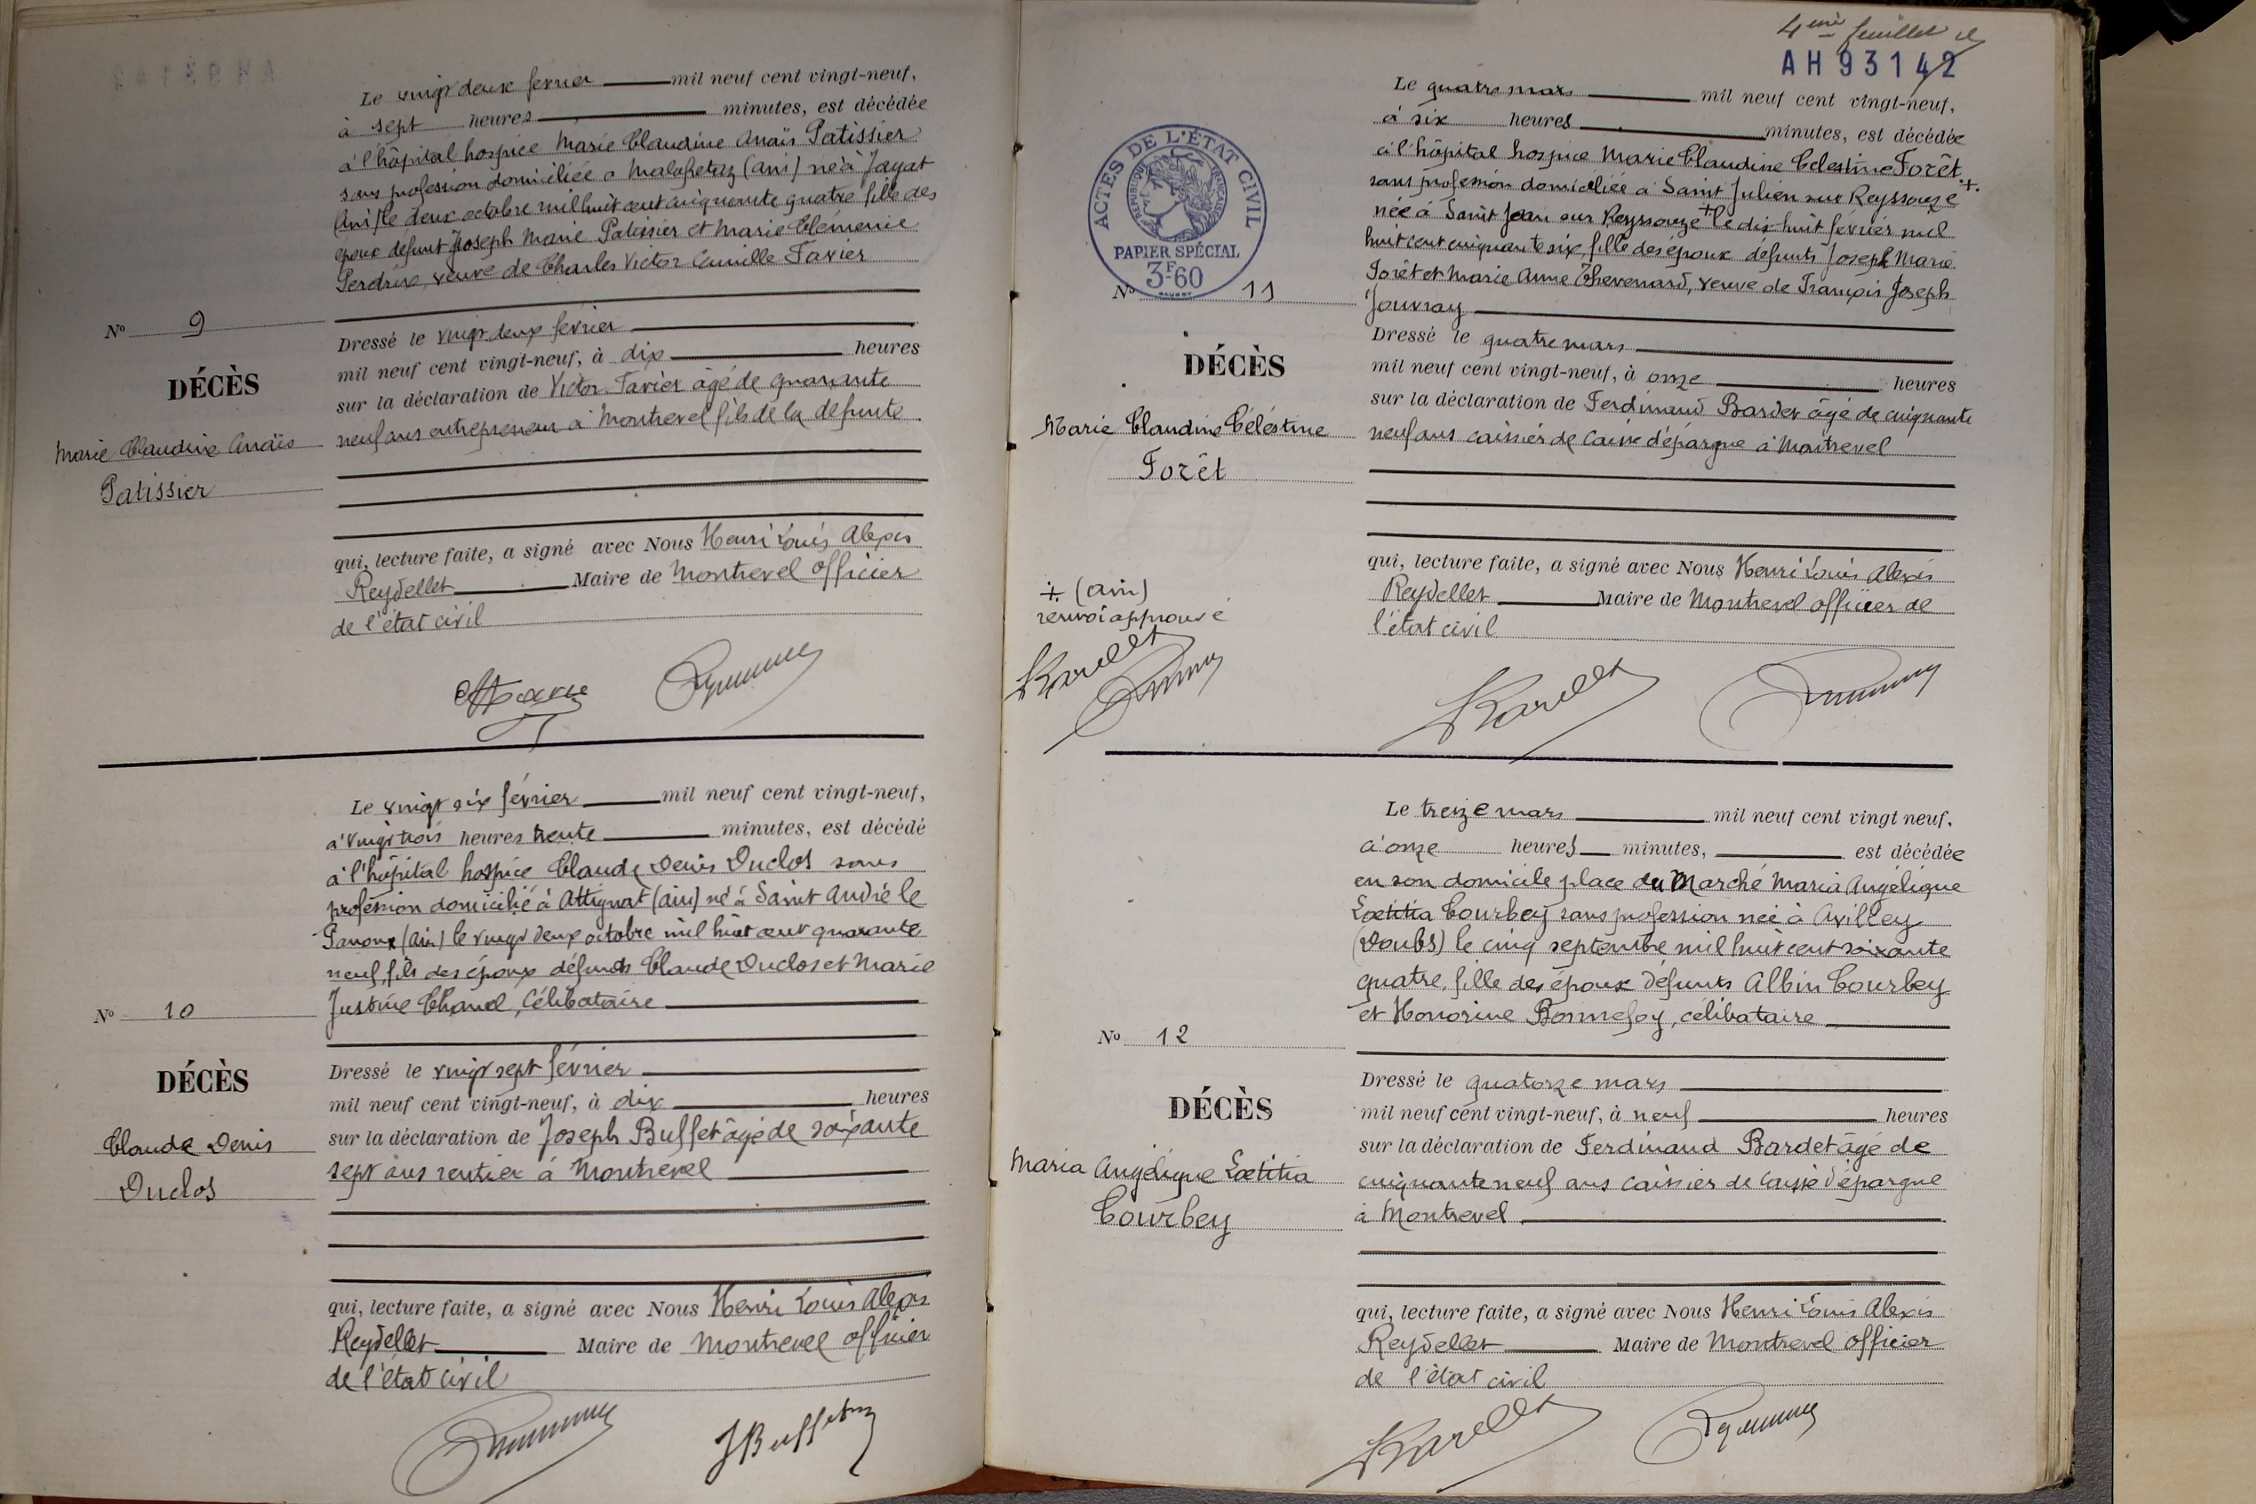 Le vingt deux février mil neuf cent vingt-neuf,
à sept heures minutes, est décédée
à l'hôpital hospice Marie Claudine Anaïs Patissier
sans profession domiciliée à Malafretaz (Ain) née à Jayat
(Ain) le deux octobre mil huit cent cinquante quatre fille des
époux défunt Joseph Marie Patissier et Marie Clémence
Perdrix, veuve de Charles Victor Camille Favier
N° 9
DÉCÈS
Marie Claudine Anaïs
Patissier
Dressé le vingt deux février
mil neuf cent vingt-neuf, à dix heures
sur la déclaration de Victor Favier âgé de quarante
neuf ans entrepreneur à Montrevel fils de la défunte
qui, lecture faite, a signé avec Nous Henri Louis Alexis
Reydellet Maire de Montrevel officier
de l'état civil
Le vingt six février mil neuf cent vingt-neuf,
à vingt trois heures trente minutes, est décédé
à l'hôpital hospice Claude Denis Duclos sans
profession domicilié à Attignat (Ain) né à Saint André le
Panoux (Ain) le vingt deux octobre mil huit cent quarante
neuf, fils des époux défunts Claude Duclos et Marie
Justine Chanel, célibataire
N° 10
DÉCÈS
Claude Denis
Duclos
Dressé le vingt sept février
mil neuf cent vingt-neuf, à dix heures
sur la déclaration de Joseph Buffet âgé de soixante
sept ans rentier à Montrevel
qui, lecture faite, a signé avec Nous Henri Louis Alexis
Reydellet Maire de Montrevel officier
de l'état civil
JBuffet
4ème feuillet
AH 93142
ACTES DE L'ÉTAT CIVIL
RÉPUBLIQUE FRANÇAISE
PAPIER SPÉCIAL
3F-60
Le quatre mars mil neuf cent vingt-neuf,
à six heures minutes, est décédée
à l'hôpital hospice Marie Claudine Célestine Forêt
sans profession domiciliée à Saint Julien sur Reyssouze +
née à Saint Jean sur Reyssouze + le dix huit février mil
huit cent cinquante six, fille des époux défunts Joseph Marie
Forêt et Marie Anne Thevenard, veuve de François Joseph
Jouvray
N° 11
DÉCÈS
Marie Claudine Célestine
Forêt
Dressé le quatre mars
mil neuf cent vingt-neuf, à onze heures
sur la déclaration de Ferdinand Bardet âgé de cinquante
neuf ans caissier de Caisse d'épargne à Montrevel
qui, lecture faite, a signé avec Nous Henri Louis Alexis
Reydellet Maire de Montrevel officier de
l'état civil
+ (Ain)
renvoi approuvé
Le treize mars mil neuf cent vingt neuf,
à onze heures minutes, est décédée
en son domicile place du Marché Maria Angélique
Lœtitia Courbey sans profession née à Avilley
(Doubs) le cinq septembre mil huit cent soixante
quatre, fille des époux défunts Albin Courbey
et Honorine Bonnefoy, célibataire
N° 12
DÉCÈS
Maria Angélique Lœtitia
Courbey
Dressé le quatorze mars
mil neuf cent vingt-neuf, à neuf heures
sur la déclaration de Ferdinand Bardet âgé de
cinquante neuf ans caissier de Caisse d'épargne
à Montrevel
qui, lecture faite, a signé avec Nous Henri Louis Alexis
Reydellet Maire de Montrevel officier
de l'état civil